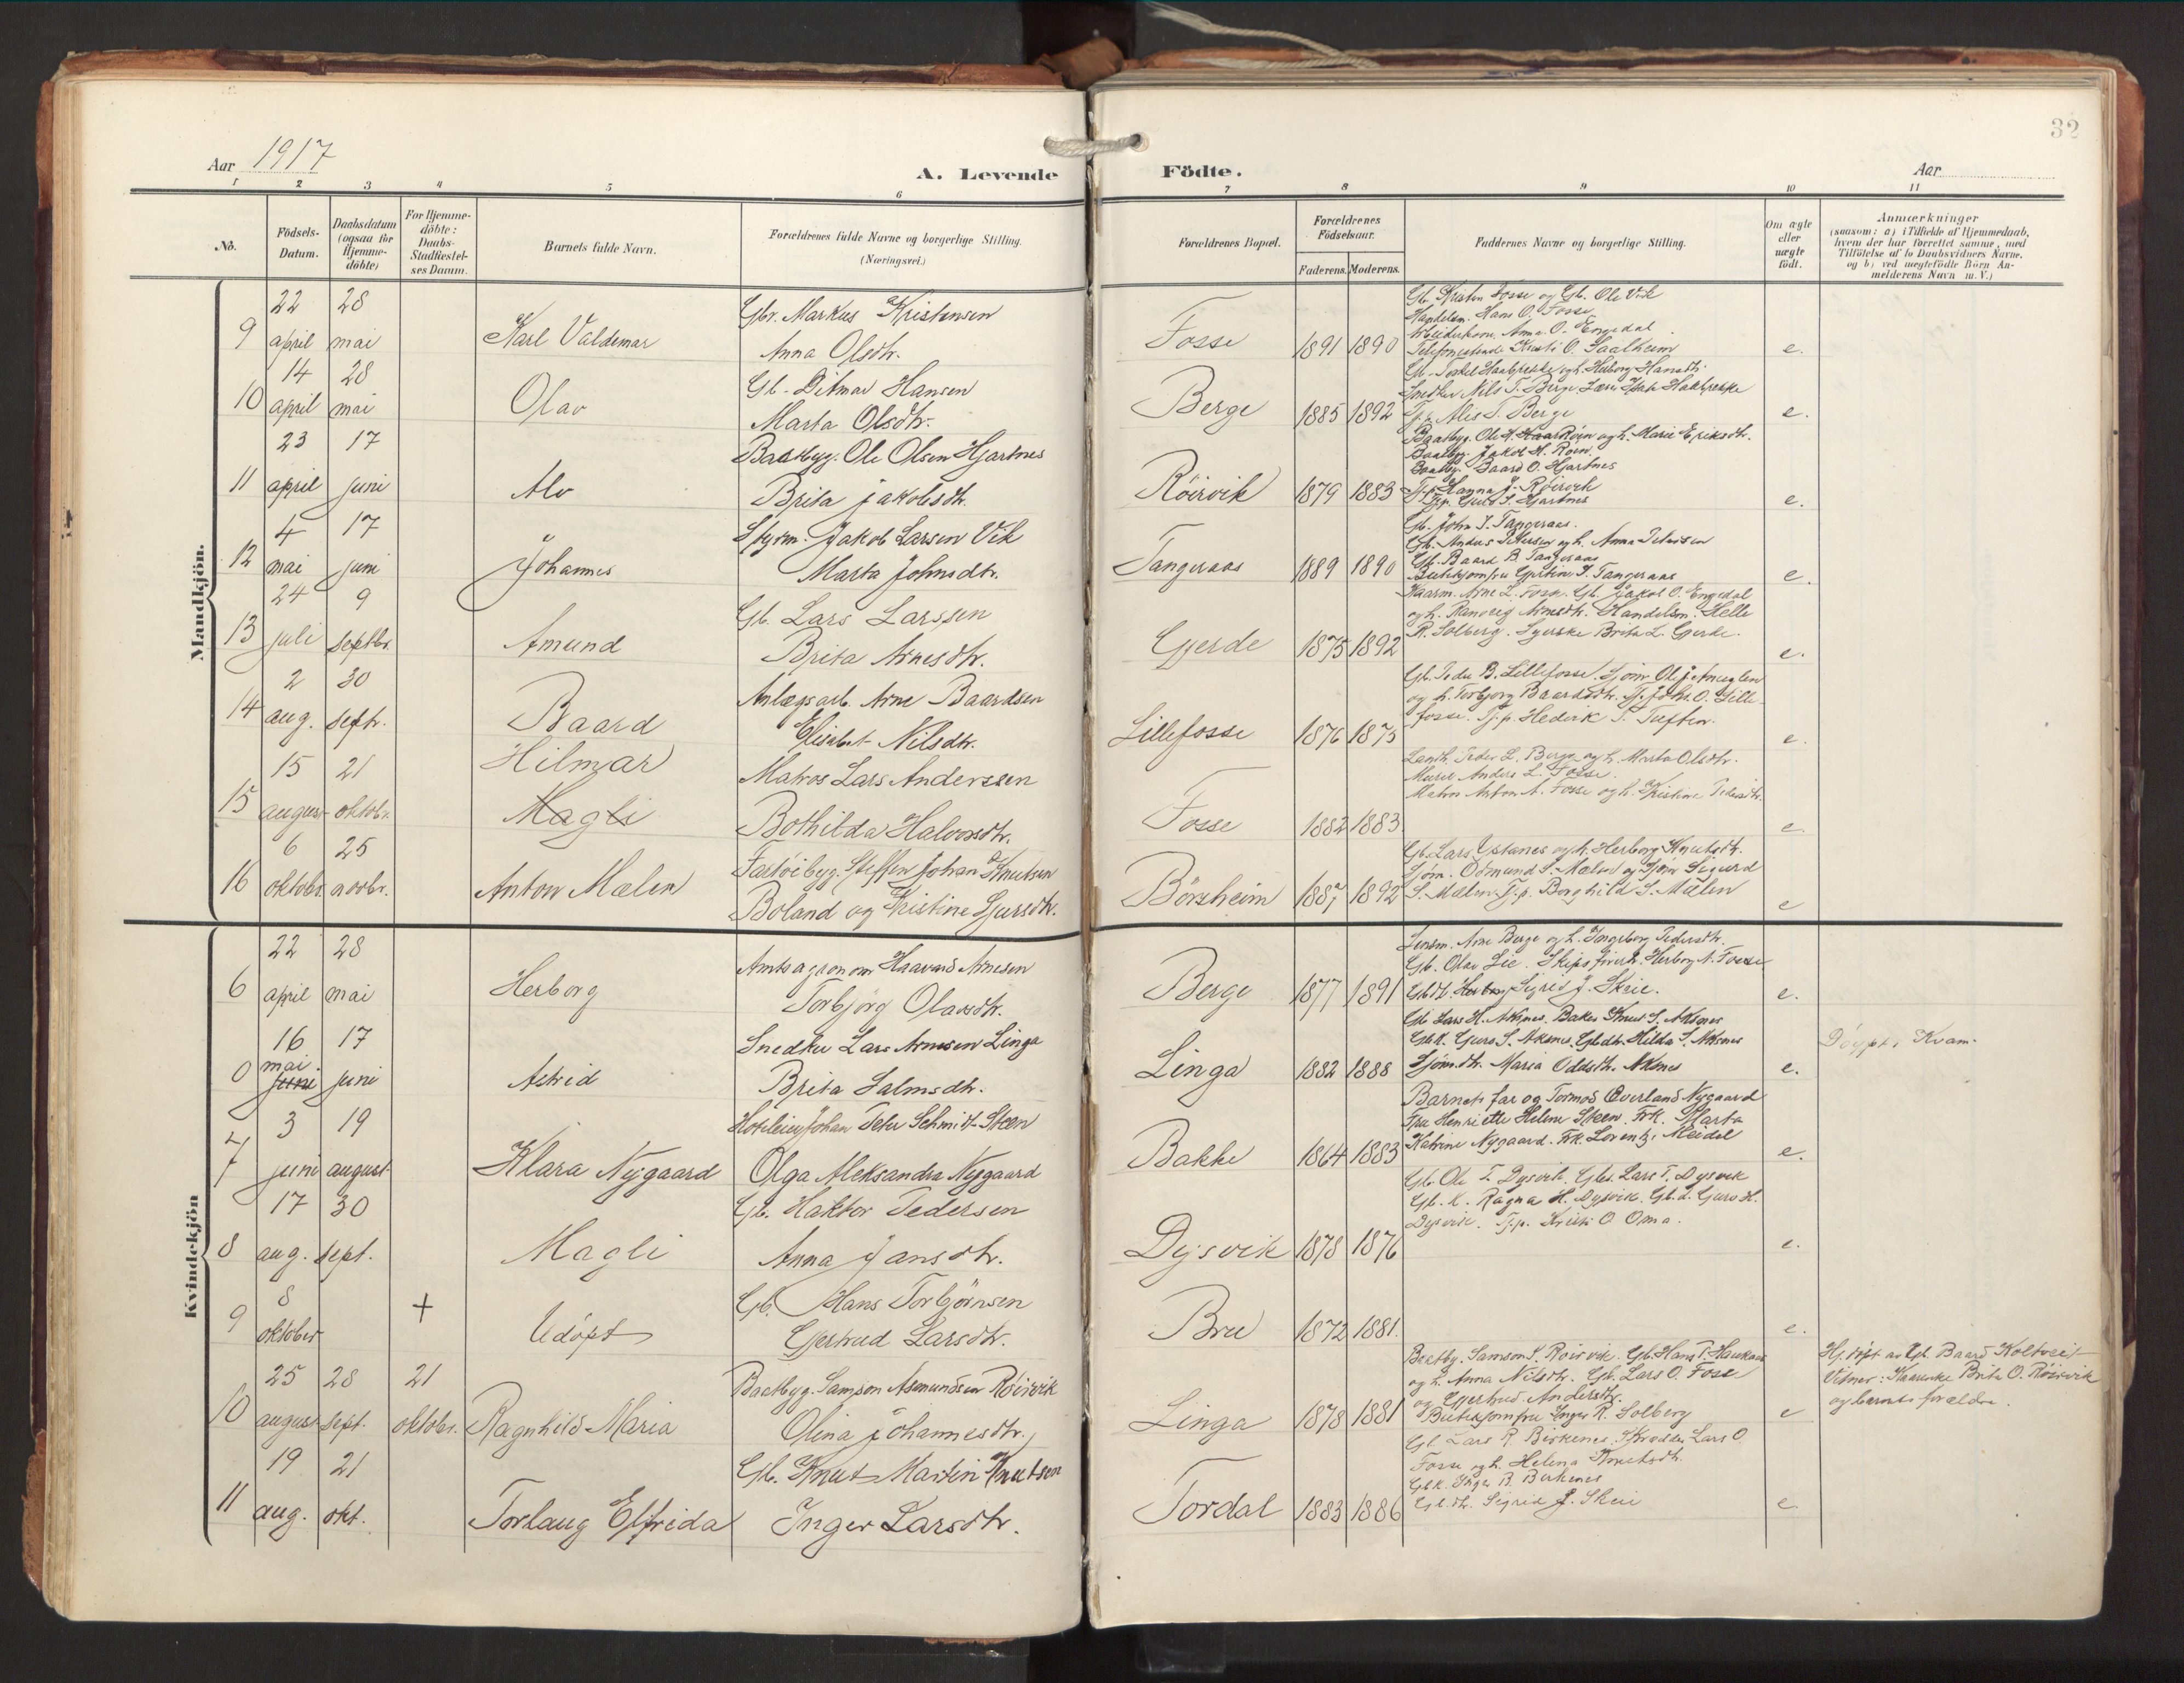 32
Aar 1917
A. Levende Födte.
Aar
1 2 3 4 5 6 7 8 9 10 11
No.
Födsels-Datum.
Daabsdatum (ogsaa for Hjemme-döbte)
For Hjemme-döbte: Daabs-Stadfæstel-ses Datum.
Barnets fulde Navn.
Forældrenes fulde Navne og borgerlige Stilling. (Næringsvei.)
Forældrenes Bopæl.
Forældrenes Födselsaar.
Faderens. Moderens.
Faddernes Navne og borgerlige Stilling.
Om ægte eller uægte födt.
Anmærkninger
(saasom: a) i Tilfælde af Hjemmedaab,
hvem der har forrettet samme, med
Tilföielse af to Daabsvidners Navne.
og b) ved uægtefödte Börn An-
melderens Navn m. V.)
Mandkjön.
9 22 april 28 mai Karl Valdemar
Gbr. Markus Kristensen
Anna Olsdtr.
Fosse 1891 1890
Gb. Kristen Fosse og Gb. Ole Vik
Handelsm. Hans O. Fosse
Anna O. Engedal
O. Saalheim
e.
10 14 april 28 mai Olav
Gb. Ditmar Hansen
Marta Olsdtr.
Berge 1885 1892
Snedker Nils T. Berge
Tjp. Alis T. Berge
e.
11 23 april 17 juni Alv
Baatbyg. Ole Olsen Hjartnes
Brita Jakobsdtr.
Röirvik 1879 1883
og h. Marie Eriksdtr.
Baatbyg. Jakob H. Röen
Baatbyg. Baard O. Hjartnes
Tjp. Hanna J. Röirvik
e.
12 4 mai 17 juni Johannes
Styrm. Jakob Larsen Vik
Marta Johnsdtr.
Tangeraas 1889 1890
Gb. John J. Tangeraas.
Gb. Baard B. Tangeraas
J. Tangeraas
e.
13 24 juli 9 septbr. Amund
Gb. Lars Larssen
Brita Arnesdtr.
Gjerde 1875 1892
Arne L. Fosse. Gb. Jakob O. Engedal
og h. Ranveig Arnesdtr. Handelsm. Helle
R. Solberg. Syerske Brita L. Gjerde.
e.
14 2 aug. 30 septr. Baard
Anlægsarb. Arne Baardsen
Elisabet Nilsdtr.
Lillefosse 1876 1875
Gb. Peder B. Lillefosse.
og h. Torbjorg Baardsdtr. O. Lille-
fosse. Tj.p. Hedvik T. Tuften.
e.
15 15 august 21 oktobr. Hilmar
Magli
Matros Lars Anderssen
Bothilda Halvorsdtr.
Fosse 1882 1883
Peder L. Berge og h. Marta Olsdtr.
Murer Anders L. Fosse.
Matros Anton A. Fosse og h. Kristine Pedersdtr.
e.
16 6 oktobr. 25 novbr. Anton Mælen
Fartöibyg. Steffen Johan Knutsen
Boland og Kristine Sjursdtr.
Börsheim 1887 1892
Gb. Lars Ystanes og h. Herborg Knutsdtr.
Sjöm. Osmund S. Mælen og Sjöm. Sigurd
S. Mælen. Tj.p. Borghild S. Mælen
e
Kvindekjön
6 22 april 28 mai Herborg
Amtsagronom Haavard Arnesen
Torbjörg Olavsdtr.
Berge 1877 1891
Lensm. Arne Berge og h. Ingeborg Pedersdtr.
Gb. Olav Lie. Herborg A. Fosse
Sigrid J. Skeie.
e.
0 16 mai juni 17 juni Astrid
Snedker Lars Arnesen Linga
Brita Salmsdtr.
Linga 1882 1888
Gb. Lars H. Aksnes. Baker Knut S. Aksnes
Gbk. Guro S. Aksnes. Gbdtr. Hilda S. Aksnes
Sjömdtr. Maria Oddsdtr. Aksnes
e.
Döypt i Kvam.
7 3 juni 19 august Klara Nygaard
Hoteleier Johan Peter Schmidt Steen
Olga Aleksandra Nygaard
Bakke 1864 1883
Barnets far og Tormod Överland Nygaard
Fru Henriette Helene Steen. Frk. Marta
Katrine Nygaard. Frk. Lorentz. Meidel
e.
8 17 aug. 30 sept. Magli
Gb. Haktor Pedersen
Anna Jansdtr.
Dysvik 1878 1876
Gb. Ole T. Dysvik. Gbs. Lars T. Dysvik
Gb. k. Ragna H. Dysvik. Gb. d. Guro H.
Dysvik. Tj.p. O. Oma.
e.
9 8 oktober + Udöpt
Gb. Hans Torbjörnsen
Gjertrud Larsdtr.
Bru 1872 1881.
e.
10 25 august 28 sept. 21 oktobr. Ragnhild Maria
Baatbyg. Samson Asmundsen Röirvik
Olina Johannesdtr.
Linga 1878 1881
Baatby. Samson S. Röirvik. Gb. Hans T. Haukaas
og h. Anna Nilsdtr. Gb. Lars O. Fosse
og Gjertrud Andersdtr.
Inger R. Solberg
e
Hj. döpt av Gb. Baard Koltveit
Vitner: Brita O. Röirvik
og barnets forældre.
11 19 aug. 21 okt. Torlaug Elfrida
Gb. Knut Martin Knutson
Inger Larsdtr.
Tordal 1883 1886
Gb. Lars R. Birkenes. Skrædder Lars O.
Fosse og h. Helena Knutsdtr.
Gbk. Inger B. Birkenes
Gb. dtr. Sigrid J. Skeie
e.